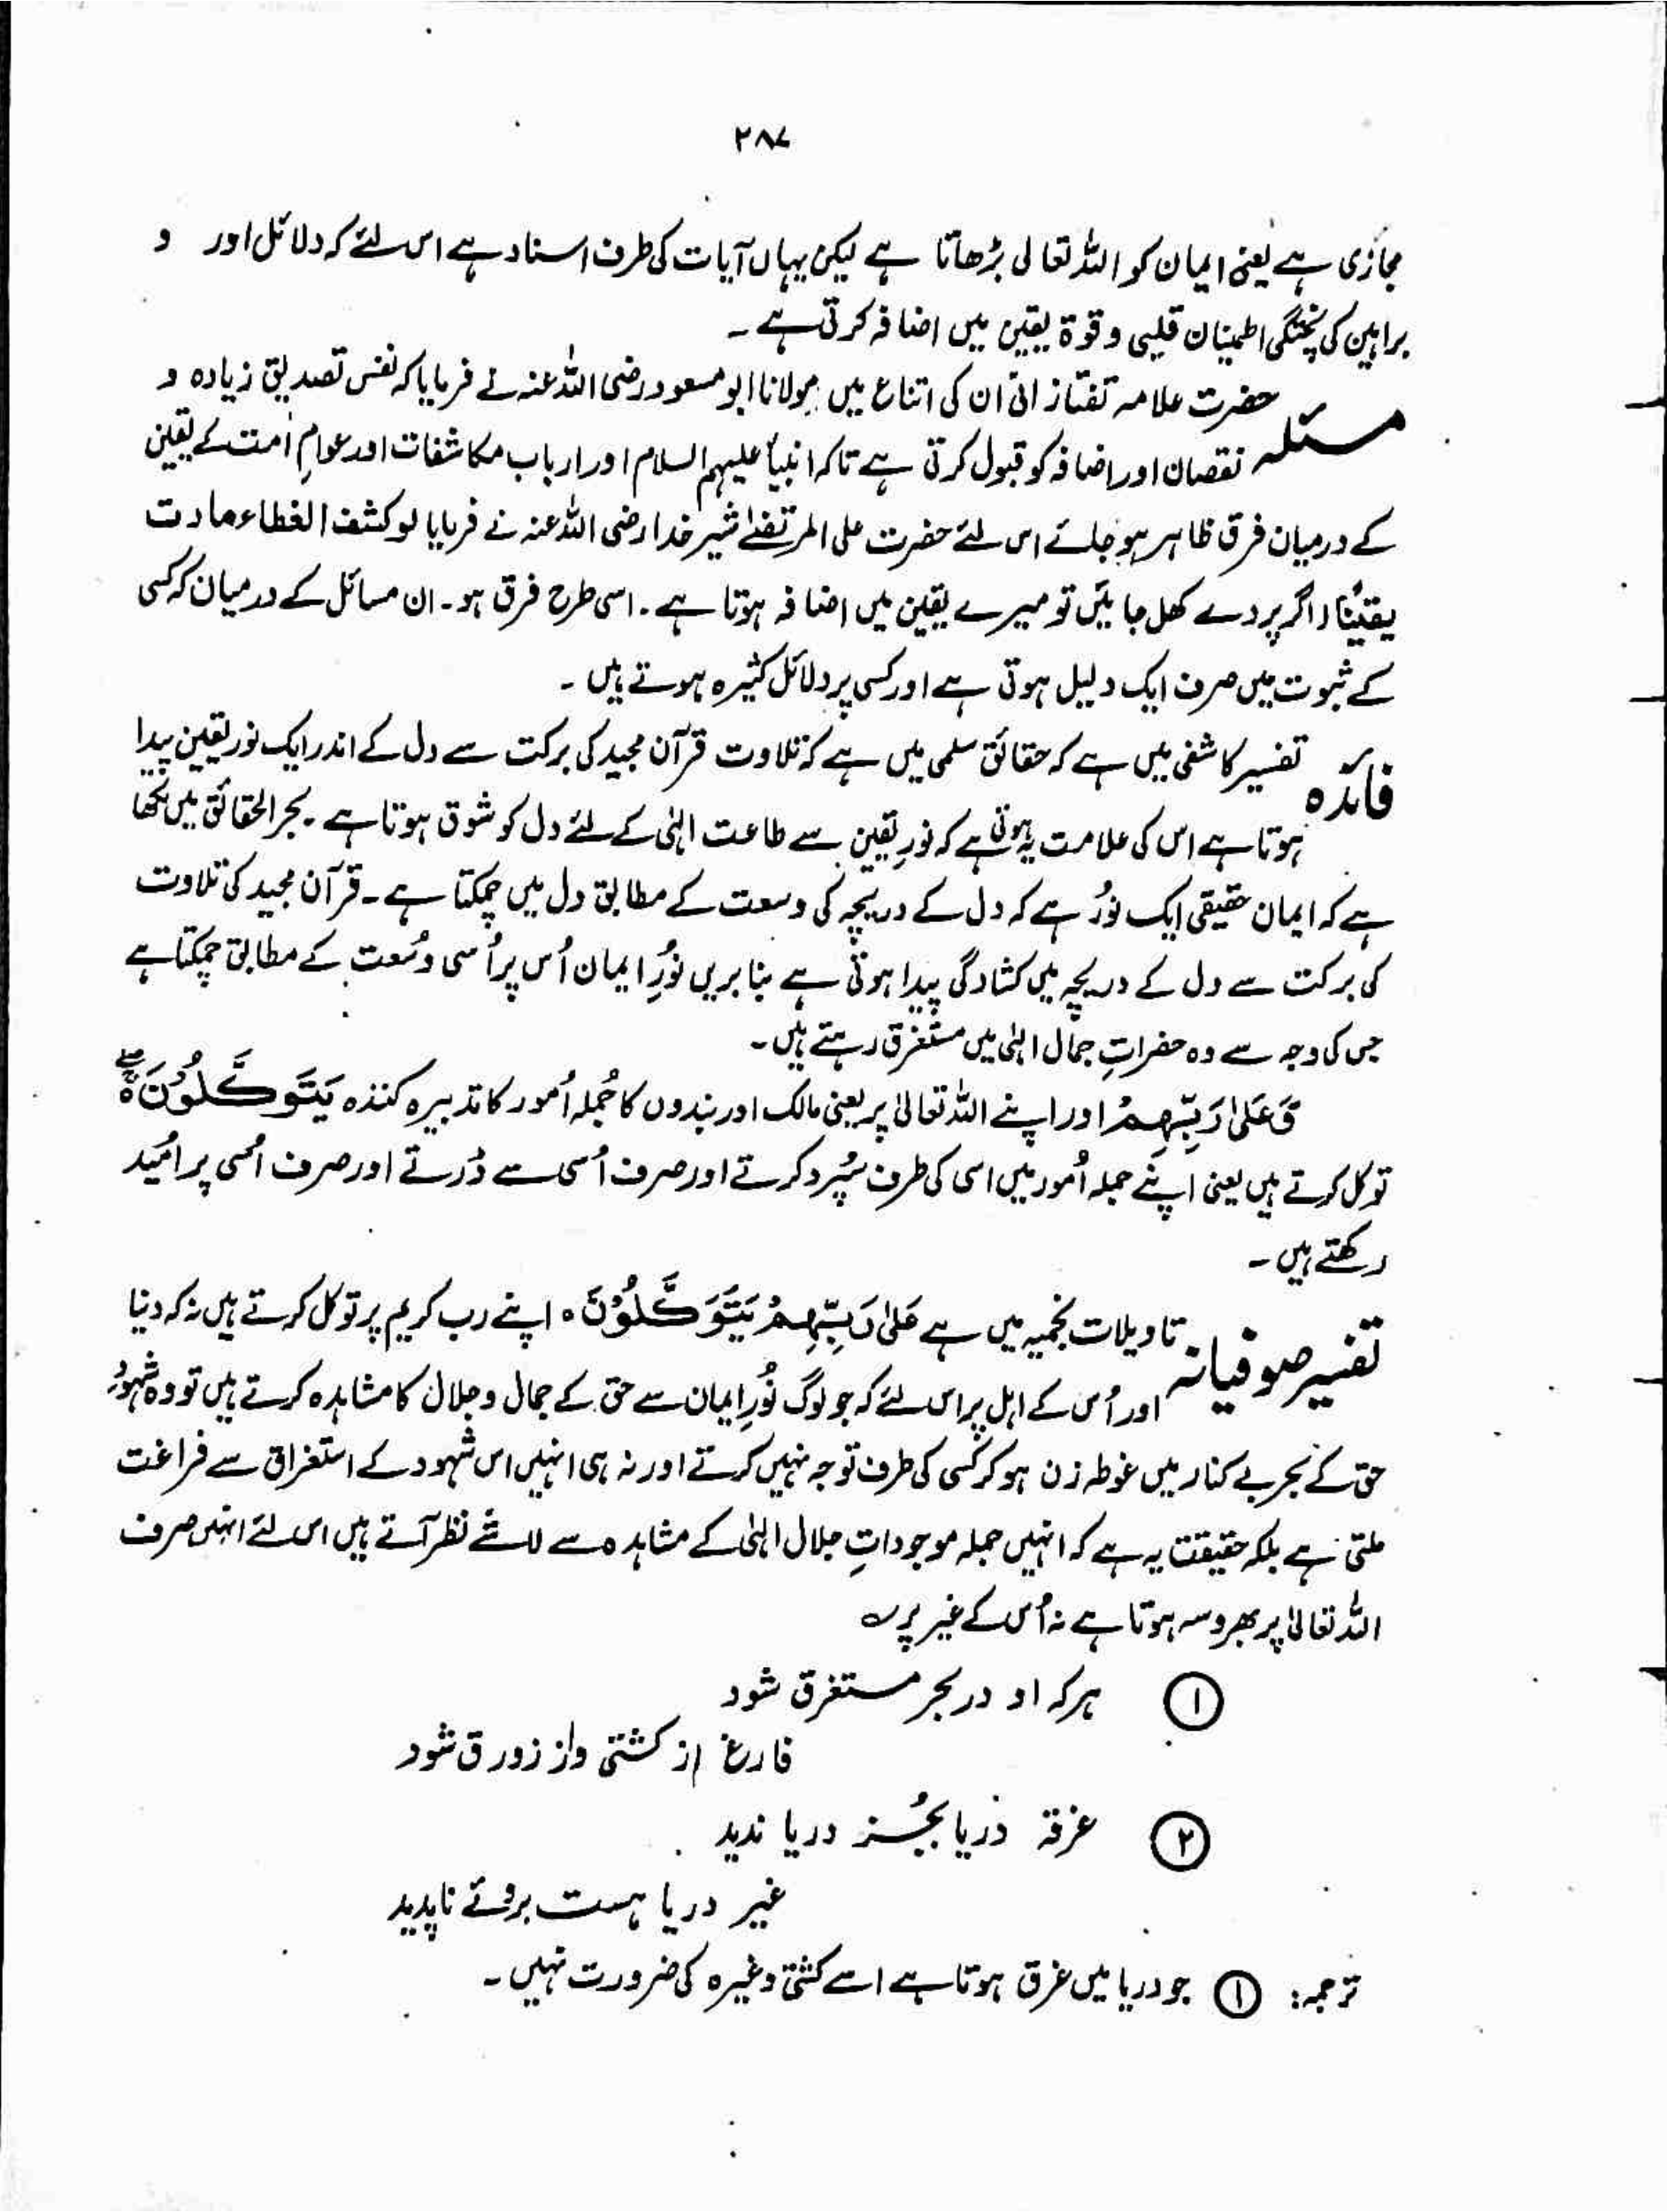 ۲۸۷
مجازی ہے یعنی ایمان کو اللہ تعالی بڑھاتا ہے لیکن یہاں آیات کی طرف اسناد ہے اس لئے کہ دلائل اور و
براہین کی پختگی اطمینان قلبی و قوۃ یقین میں اضافہ کرتی ہے ۔
مسئلہ حضرت علامہ تفتازانی ان کی اتناع میں مولانا ابو مسعود رضی اللہ عنہ نے فرمایا کہ نفس تصدیق زیادہ و
نقصان اور اضافہ کو قبول کرتی ہے تاکہ انبیاء علیہم السلام اور ارباب مکاشفات اور عوامِ اُمت کے یقین
کے درمیان فرق ظاہر ہو جائے اس لئے حضرت علی المرتضےٰ شیر خدا رضی اللہ عنہ نے فرمایا لو کشف الغطاء مادت
یقینًا (اگر پردے کھل جائیں تو میرے یقین میں اضافہ ہوتا ہے ۔ اسی طرح فرق ہو ۔ ان مسائل کے درمیان کہ کسی
کے ثبوت میں صرف ایک دلیل ہوتی ہے اور کسی پر دلائل کثیرہ ہوتے ہیں ۔
فائدہ تفسیر کاشفی میں ہے کہ حقائق سلمی میں ہے کہ تلاوت قرآن مجید کی برکت سے دل کے اندر ایک نور یقین پیدا
ہوتا ہے اس کی علامت یہ ہوتی ہے کہ نورِ یقین سے طاعت الہٰی کے لئے دل کو شوق ہوتا ہے ۔ بحر الحقائق میں لکھا
ہے کہ ایمان حقیقی ایک نوُر ہے کہ دل کے دریچہ کی وسعت کے مطابق دل میں چمکتا ہے ۔ قرآن مجید کی تلاوت
کی برکت سے دل کے دریچہ میں کشادگی پیدا ہوتی ہے بنا بریں نوُرِ ایمان اُس پر اُسی وسُعت کے مطابق چمکتا ہے
جس کی وجہ سے وہ حضراتِ جمال الہٰی میں مستغرق رہتے ہیں ۔
وَعَلیٰ رَبِّهِمْ اور اپنے اللہ تعالیٰ پر یعنی مالک اور بندوں کا جُملہ اُمور کا تدبیرہ کنندہ یَتَوَکَّلُوْنَ ہ
توکل کرتے ہیں یعنی اپنے جملہ اُمور میں اسی کی طرف سپُرد کرتے اور صرف اُسی سے ڈرتے اور صرف اُسی پر امُید
رکھتے ہیں ۔
تفسیر صوفیانہ تاویلات نجمیہ میں ہے عَلیٰ رَبِّهِمْ یَتَوَکَّلُوْنَ ہ اپنے رب کریم پر توکل کرتے ہیں نہ کہ دنیا
اور اُس کے اہل پر اس لئے کہ جو لوگ نُورِ ایمان سے حق کے جمال و جلال کا مشاہدہ کرتے ہیں تو وہ شہودِ
حق کے بحر بے کنار میں غوطہ زن ہو کر کسی کی طرف توجہ نہیں کرتے اور نہ ہی انہیں اس شہود کے استغراق سے فراغت
ملتی ہے بلکہ حقیقت یہ ہے کہ انہیں جملہ موجوداتِ جلال الہٰی کے مشاہدہ سے لاشے نظر آتے ہیں اس لئے انہیں صرف
اللہ تعالیٰ پر بھروسہ ہوتا ہے نہ اُس کے غیر پر ؎
① ہر کہ او در بحر مستغرق شود
فارغ از کشتی و از زورق شود
② غرقۂ دریا بجُز دریا ندید
غیر دریا ہست بروئے ناپدید
ترجمہ: ① جو دریا میں غرق ہوتا ہے اسے کشتی وغیرہ کی ضرورت نہیں ۔